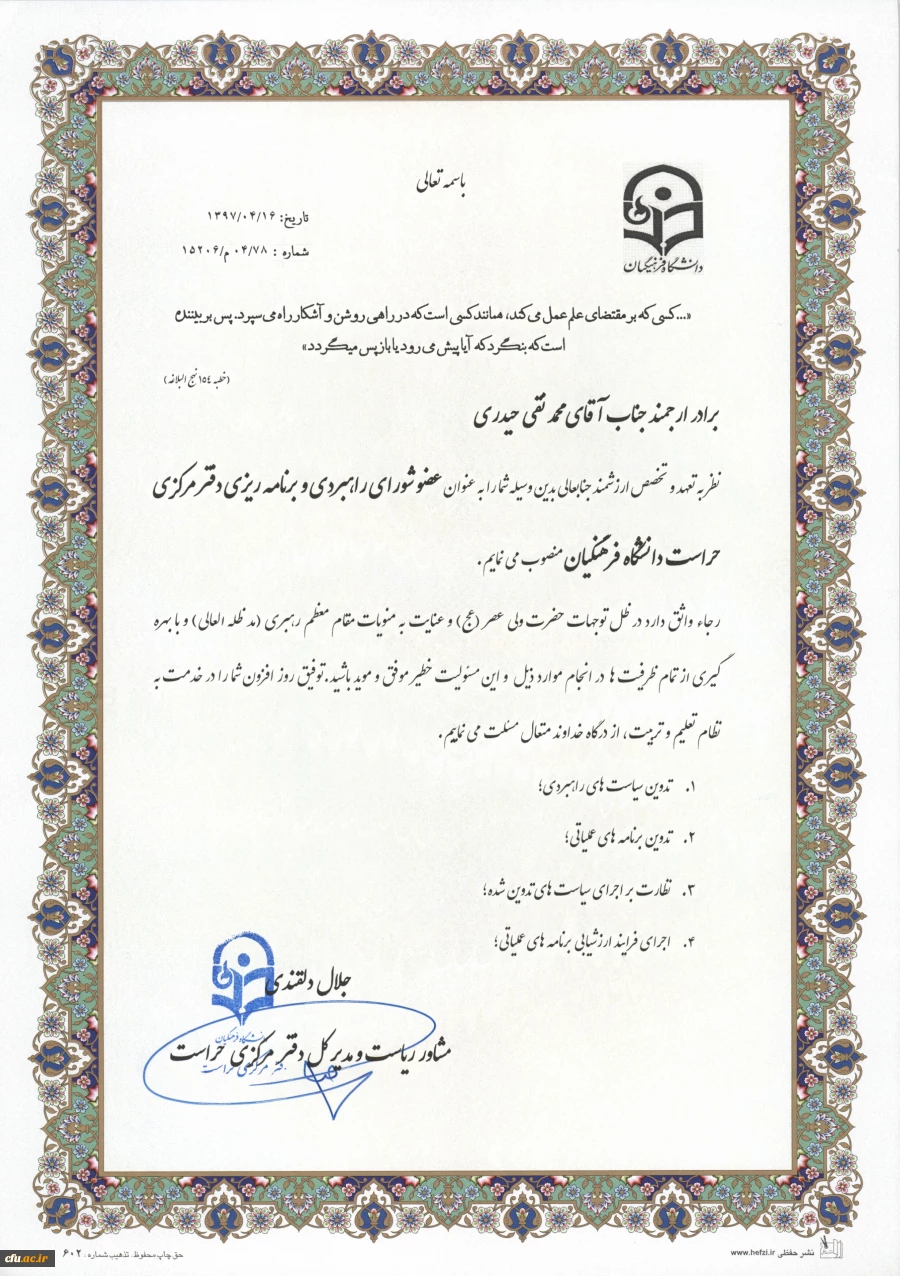 باسمه تعالی
تاریخ: ۱۳۹۷/۰۴/۱۶
شماره : ۰۴/۷۸ م/۱۵۲۰۶
دانشگاه فرهنگیان
«...کسی که بر مقتضای علم عمل می کند، همانند کسی است که در راهی روشن و آشکار راه می سپرد. پس بر بیننده
است که بنگرد که آیا پیش می رود یا باز پس میگردد»
(خطبه ۱۵۴ نهج البلاغه)
برادر ارجمند جناب آقای محمد تقی حیدری
نظر به تعهد و تخصص ارزشمند جنابعالی بدین وسیله شما را به عنوان عضو شورای راهبردی و برنامه ریزی دفتر مرکزی
حراست دانشگاه فرهنگیان منصوب می نمایم.
رجاء واثق دارد در ظل توجهات حضرت ولی عصر (عج) و عنایت به منویات مقام معظم رهبری (مد ظله العالی) و با بهره
گیری از تمام ظرفیت ها در انجام موارد ذیل و این مسئولیت خطیر موفق و موید باشید. توفیق روز افزون شما را در خدمت به
نظام تعلیم و تربیت، از درگاه خداوند متعال مسئلت می نماییم.
۱. تدوین سیاست های راهبردی؛
۲. تدوین برنامه های عملیاتی؛
۳. نظارت بر اجرای سیاست های تدوین شده؛
۴. اجرای فرایند ارزشیابی برنامه های عملیاتی؛
جلال دلقندی
مشاور ریاست و مدیر کل دفتر مرکزی حراست
دانشگاه فرهنگیان
دفتر مرکزی حراست
نشر حفظی www.hefzi.ir
حق چاپ محفوظ. تذهیب شماره : ۶۰۲
cfu.ac.ir